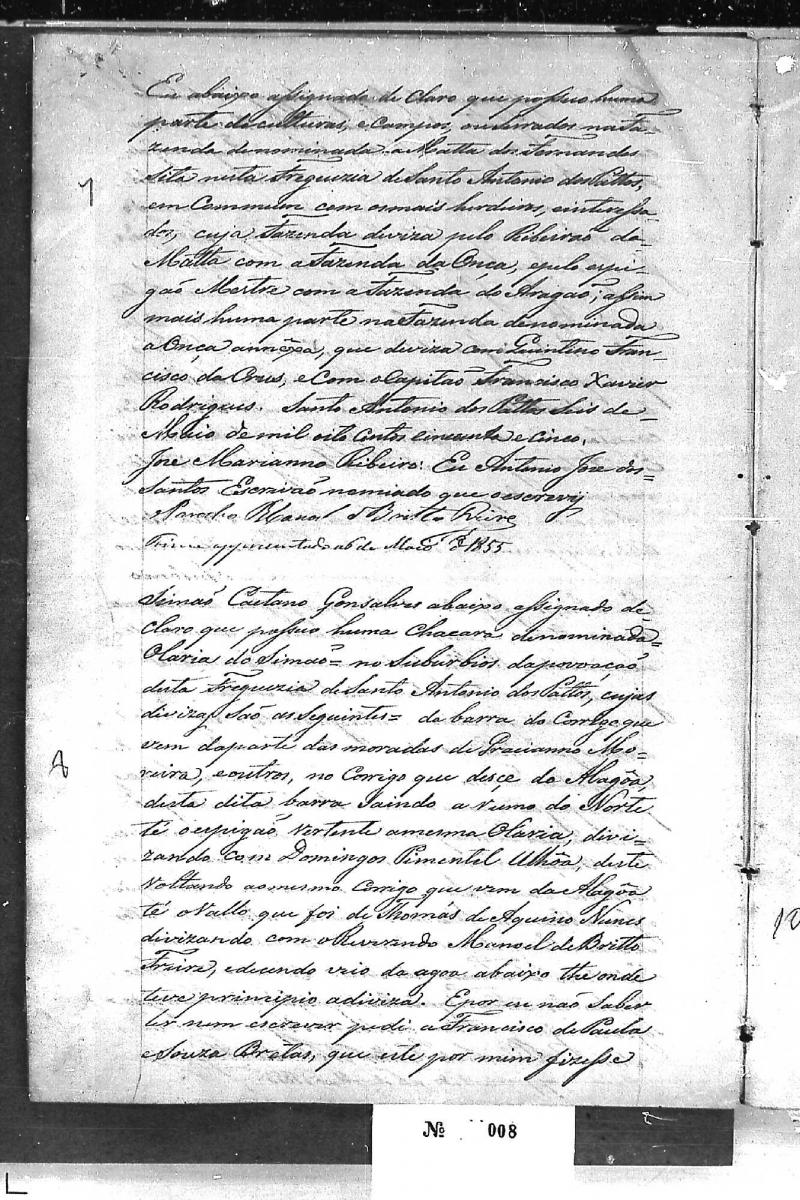 Eu abaixo assignado declaro que possuo huma
parte de culturas, e campos, ou serrados na Fa-
zenda denominada a Matta dos Fernandes
Sita nesta Freguezia de Santo Antonio dos Pattos,
em Commum com os mais herdeiros, e interessa-
dos, cuja Fazenda diviza pelo Ribeirão da
Matta com a Fazenda da Onca, e pelo espi-
gaõ Mestre com a Fazenda do Aragaõ; assim
mais huma parte na Fazenda denominada
a Onca annéxa, que diviza com Quintino Fran-
cisco da Crus, e com o Capitaõ Francisco Xavier
Rodrigues. Santo Antonio dos Pattos Seis de
Maio de mil oito centos cincoenta e cinco.
Joze Marianno Ribeiro. Eu Antonio Joze dos
Santos Escrivaõ nomiado que o escrevy
O Parocho Manoel de Britto Freire
Foi me apprezentado a 6 de Maio de 1855
7
Simaõ Caetano Gonsalves abaixo assignado de-
claro que possuo huma Chacara denominada=
Olaria do Simaõ= no Suburbios da povoaçaõ
desta Freguezia de Santo Antonio dos Pattos, cujas
divizas Saõ as Seguintes= da barra do Corrego que
vem da parte das moradas de Gracianno Mo-
reira, e outros, no Corrigo que desçe da Alagôa,
desta dita barra Saindo a rumo do Norte
té o espigaõ vertente a mesma Olaria, divi-
zando com Domingos Pimentel Ulhôa, deste
Voltando ao mesmo Corrigo que vem da Alagôa
té o Vallo que foi de Thomás de Aquino Nunes
divizando com o Reverendo Manoel de Britto
Freire, e decendo veio da agoa abaixo the onde
teve principio a diviza. E por eu naõ Saber
ler nem escrever pedi a Francisco de Paula
e Souza Brêtas, que este por mim fizesse
8
10
Nº 008